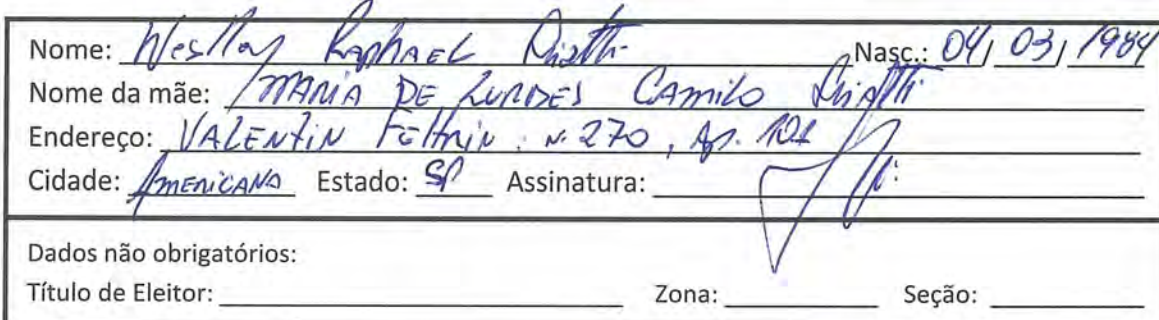 Nome: Weslley Raphael Nasc.: 04/03/1984
Nome da mãe: MARIA DE LURDES CAMILO
Endereço: VALENTIN FELTRIN, N. 270, Ap. 101
Cidade: AMERICANA Estado: SP Assinatura:
Dados não obrigatórios:
Título de Eleitor: Zona: Seção: